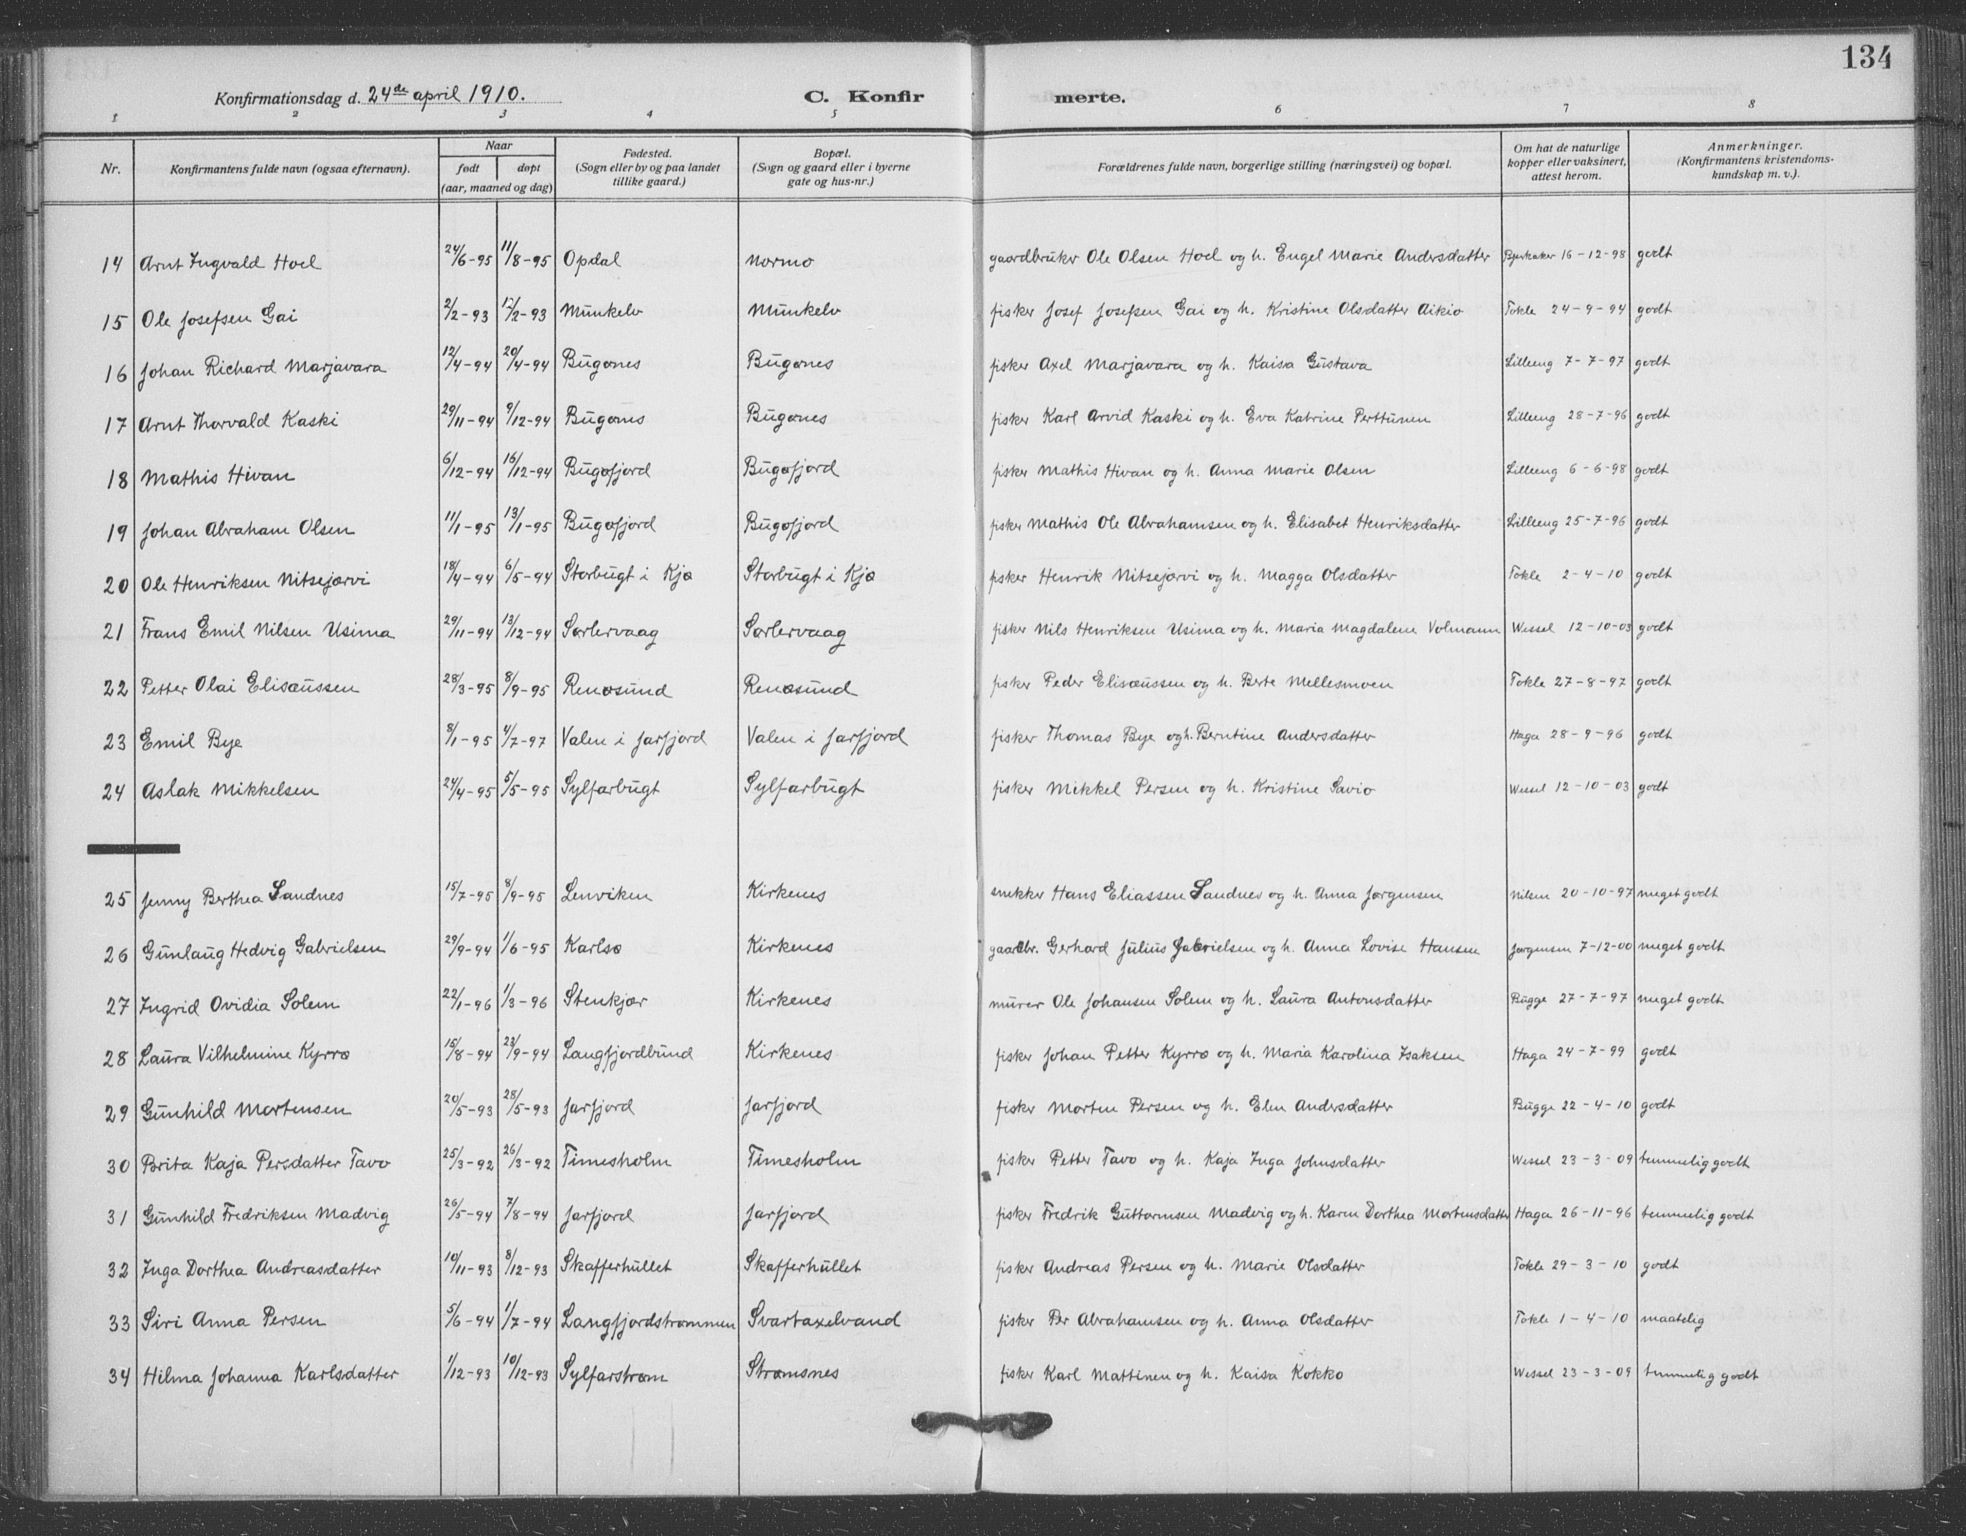 134
Konfirmationsdag d. 24de april 1910. C. Konfirmerte.
1 2 3 4 5 6 7 8
Nr. Konfirmantens fulde navn (ogsaa efternavn). Naar født døpt (aar, maaned og dag) Fødested. (Sogn eller by og paa landet tillike gaard.) Bopæl. (Sogn og gaard eller i byerne gate og hus-nr.) Forældrenes fulde navn, borgerlige stilling (næringsvei) og bopæl. Om hat de naturlige kopper eller vaksinert, attest herom. Anmerkninger. (Konfirmantens kristendomskundskap m. v.).
14 Arnt Ingvald Hoel 24/6-95 11/8-95 Opdal Normo gaardbruker Ole Olsen Hoel og h. Engel Marie Andersdatter Bjerkaker 16-12-98 godt
15 Ole Josefsen Gai 2/2-93 12/2-93 Munkelv Munkelv fisker Josef Josefsen Gai og h. Kristine Olsdatter Aikio Tokle 24-9-94 godt
16 Johan Richard Marjavara 12/4-94 20/4-94 Bugønes Bugønes fisker Axel Marjavara og h. Kaisa Gustava Lilleeng 7-7-97 godt
17 Arnt Thorvald Kaski 29/11-94 9/12-94 Bugønes Bugønes fisker Karl Arvid Kaski og h. Eva Katrine Perttunen Lilleeng 28-7-96 godt
18 Mathis Hivan 6/12-94 16/12-94 Bugøfjord Bugøfjord fisker Mathis Hivan og h. Anna Marie Olsen Lilleeng 6-6-98 godt
19 Johan Abraham Olsen 11/1-95 13/1-95 Bugøfjord Bugøfjord fisker Mathis Ole Abrahamsen og h. Elisabet Henriksdatter Lilleeng 25-7-96 godt
20 Ole Henriksen Nitsejærvi 18/4-94 6/5-94 Storbugt i Kjø Storbugt i Kjø fisker Henrik Nitsejærvi og h. Magga Olsdatter Tokle 2-4-10 godt
21 Frans Emil Nilsen Usima 29/11-94 13/12-94 Sørlervaag Sørlervaag fisker Nils Henriksen Usima og h. Maria Magdalene Volmann Wessel 12-10-03 godt
22 Petter Olai Elisæussen 28/3-95 8/9-95 Renøsund Renøsund fisker Peder Elisæussen og h. Berte Mellesmoen Tokle 27-8-97 godt
23 Emil Bye 8/1-95 4/7-97 Valen i Jarfjord Valen i Jarfjord fisker Thomas Bye og h. Berntine Andersdatter Haga 28-9-96 godt
24 Aslak Mikkelsen 24/4-95 5/5-95 Sylfarbugt Sylfarbugt fisker Mikkel Persen og h. Kristine Savio Wessel 12-10-03 godt
25 Jenny Berthea Sandnes 15/7-95 8/9-95 Lenviken Kirkenes snekker Hans Eliassen Sandnes og h. Anna Jørgensen Nilsen 20-10-97 meget godt
26 Gunlaug Hedvig Gabrielsen 29/9-94 1/6-95 Karlsø Kirkenes gaardbr. Gerhard Julius Gabrielsen og h. Anna Lovise Hansen Jørgensen 7-12-00 meget godt
27 Ingrid Ovidia Solem 22/1-96 1/3-96 Stenkjær Kirkenes murer Ole Johansen Solem og h. Laura Antonsdatter Bugge 27-7-97 meget godt
28 Laura Vilhelmine Kyrrø 15/8-94 23/9-94 Langfjordbund Kirkenes fisker Johan Petter Kyrrø og h. Maria Karolina Isaksen Haga 24-7-99 godt
29 Gunhild Mortensen 20/5-93 28/5-93 Jarfjord Jarfjord fisker Morten Persen og h. Elen Andersdatter Bugge 22-4-10 godt
30 Brita Kaja Persdatter Tavo 25/3-92 26/3-92 Timesholm Timesholm fisker Petter Tavo og h. Kaja Inga Johnsdatter Wessel 23-3-09 temmelig godt
31 Gunhild Fredriksen Madvig 26/5-94 7/8-94 Jarfjord Jarfjord fisker Fredrik Guttormsen Madvig og h. Karen Dorthea Mortensdatter Haga 26-11-96 temmelig godt
32 Inga Dorthea Andreasdatter 10/11-93 8/12-93 Skafferhullet Skafferhullet fisker Andreas Persen og h. Marie Olsdatter Tokle 29-3-10 godt
33 Siri Anna Persen 5/6-94 1/7-94 Langfjordstrømmen Svartaxelvand fisker Per Abrahamsen og h. Anna Olsdatter Tokle 1-4-10 maatelig
34 Hilma Johanna Karlsdatter 1/12-93 10/12-93 Sylfarstrøm Strømsnes fisker Karl Mattinen og h. Kaisa Kokko Wessel 23-3-09 temmelig godt